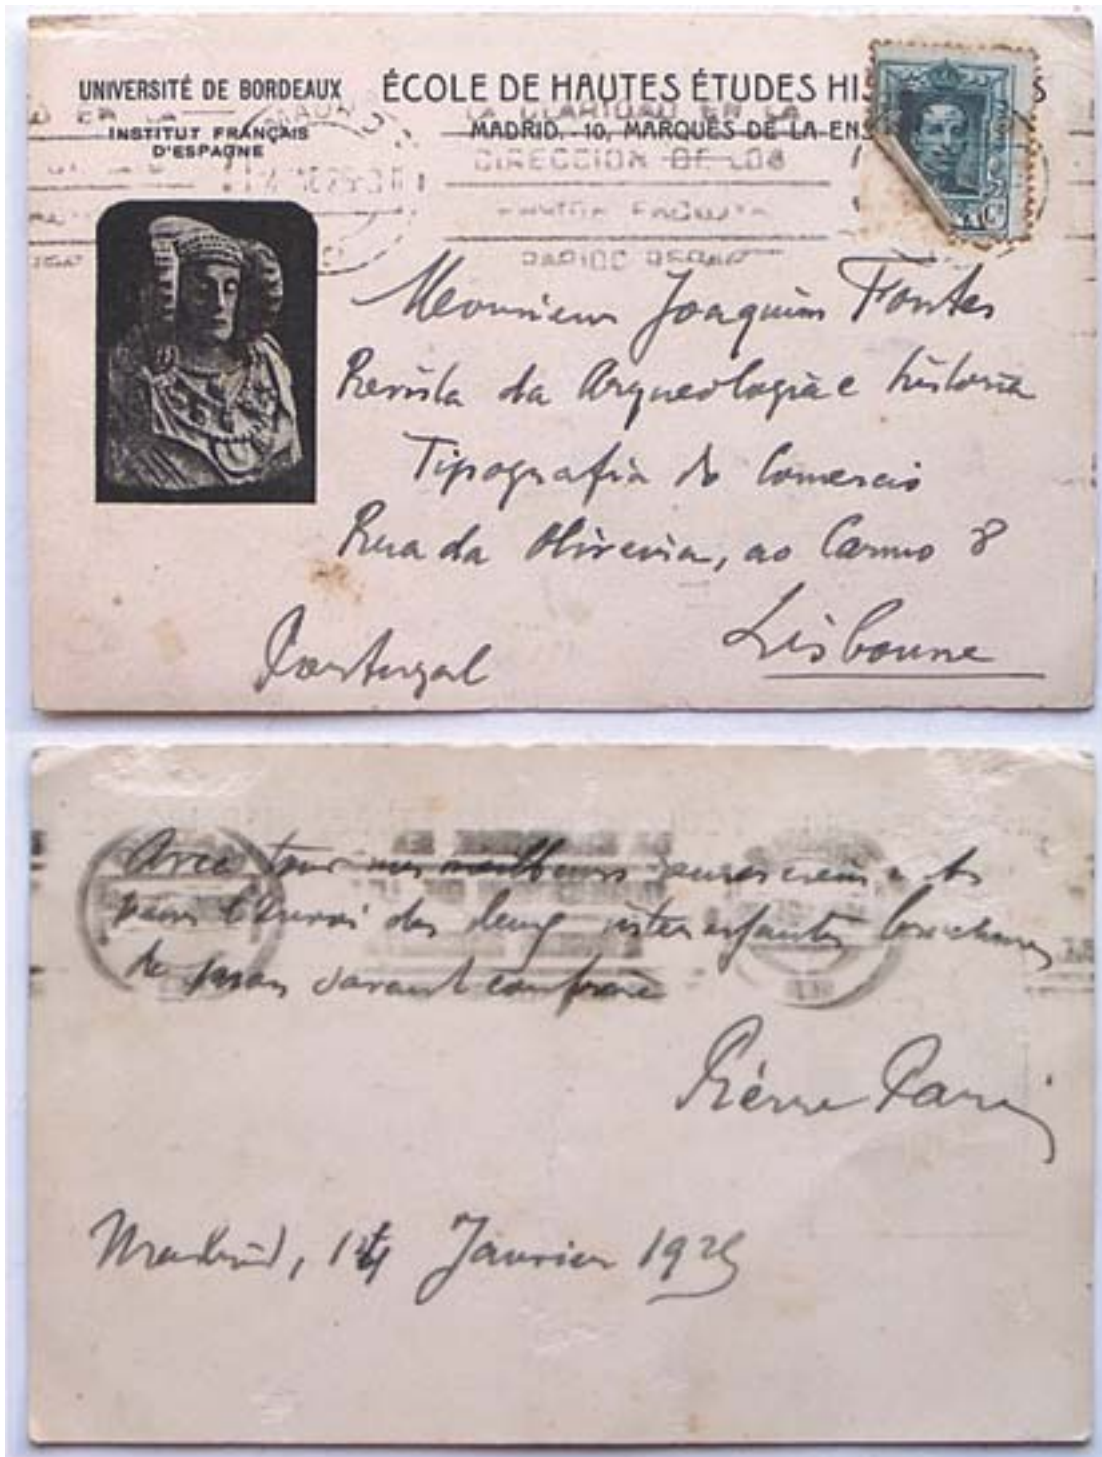 UNIVERSITÉ DE BORDEAUX
INSTITUT FRANÇAIS
D'ESPAGNE
ÉCOLE DE HAUTES ÉTUDES HIS
MADRID. - 10, MARQUÉS DE LA ENS
LA CLARIDAD EN LA
DIRECCION DE LOS
Monsieur Joaquim Fontes
Revista da Arqueologia e historia
Tipografia do Comercio
Rua da Oliveira, ao Carmo 8
Lisbonne
Portugal
Avec tous mes meilleurs remerciements
pour l'envoi des deux intéressantes brochures
de mon savant confrère
Pierre Paris
Madrid, 14 Janvier 1925